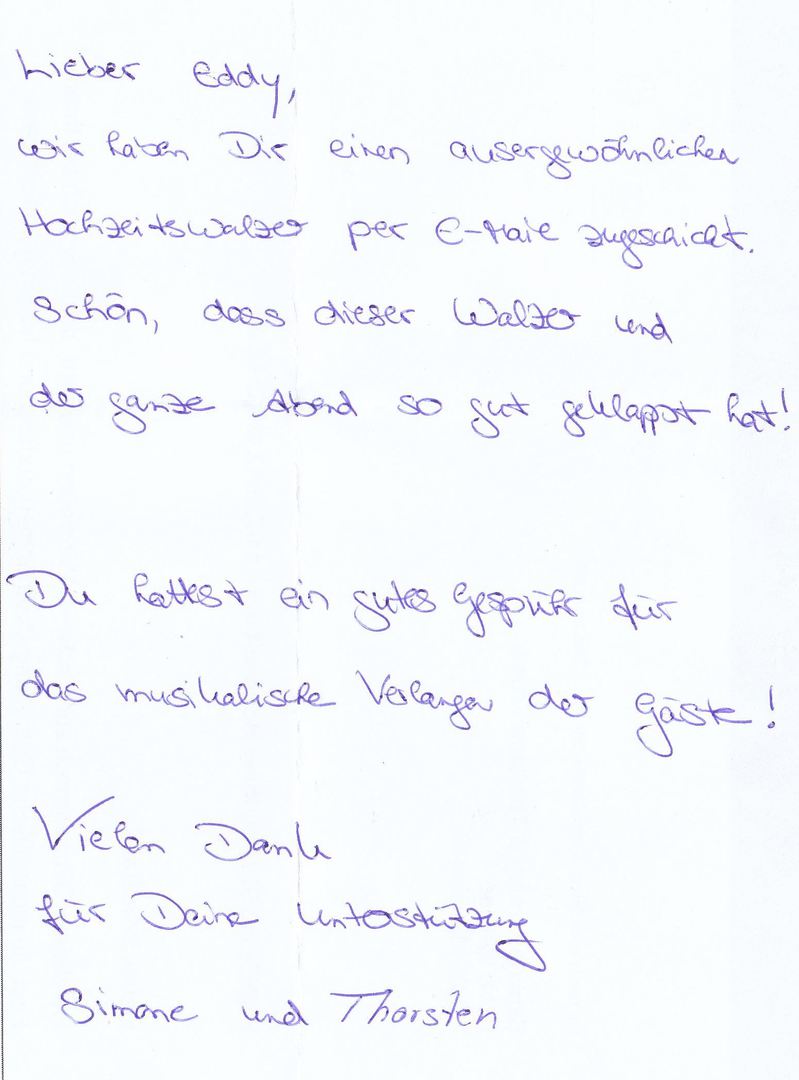 Lieber Eddy,
wir haben Dir einen ausergewöhnlichen
Hochzeitswalzer per E-Maie zugeschickt.
Schön, dass dieser Walzer und
der ganze Abend so gut geklappt hat!
Du hattest ein gutes Gespühr für
das musikalische Verlangen der Gäste!
Vielen Dank
für Deine Unterstützung
Simone und Thorsten